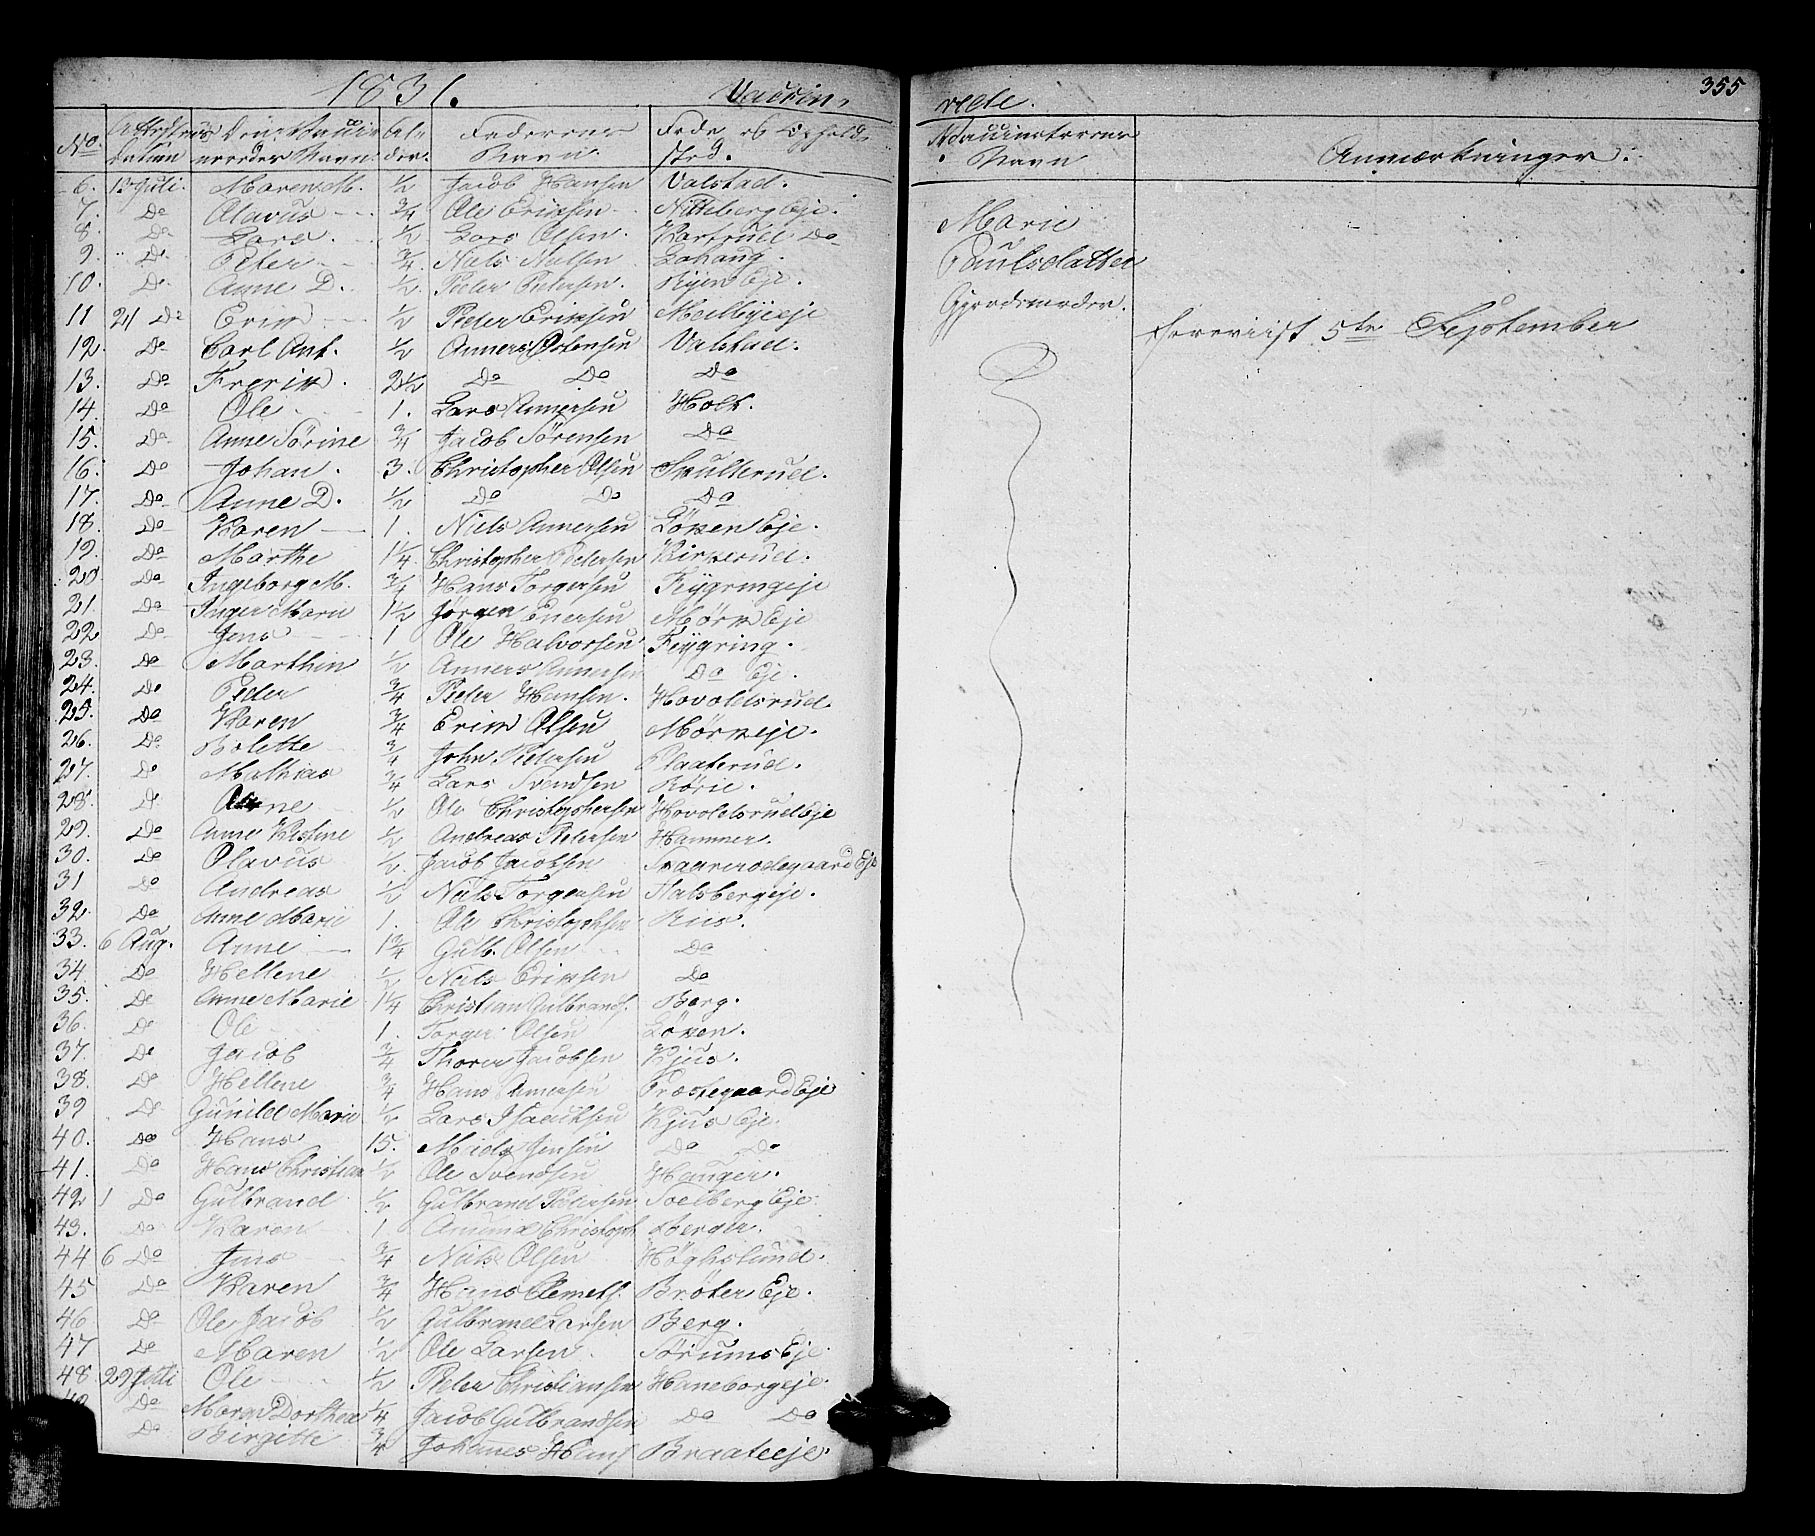 1831. Vaccin,
No. Attestens Datum Den Vacci- neredes Navn. Al- der. Faderens Navn. Føde og Opholds sted.
6. 13 Juli. Maren M. 1/2 Jacob Hansen Valstad.
7. Do Olavus 3/4 Ole Eriksen Nitteberg Eje.
8. Do Lars. 1/2 Lars Olsen. Kartrud Do
9. Do Peter 3/4 Niels Nielsen
10. Do Anne D. 1/2 Peder Petersen. Ryen Eje.
11 21 Do Erik 1/2 Peder Eriksen
12. Do Carl Ant. 1/2 Anners Østensen Valstad.
13. Do Frerik. 2 1/2 Do Do Do
14. Do Ole 1. Lars Annersen Holt.
15. Do Anne Sørine 3/4 Jacob Sørensen Do
16. Do Johan. 3. Christopher Olsen Skullerud.
17. Do Anne D. 1/2 Do Do Do
18. Do Karen 1. Niels Annersen Löken Eje.
19. Do Marthe 1 1/4 Christopher Petersen Birkerud.
20. Do Ingeborg M. 3/4 Hans Torgersen Frÿgringeje
21. Do Inger Marie 1 1/2 Jörgen Enersen Mörk Eje
22 Do Jens 1 Ole Halvorsen Frÿgring.
23. Do Marthin 1/2 Anners Annersen Do Eje.
24. Do Peder 3/4 Peder Hansen. Hovoldsrud.
25. Do Karen 3/4 Erik Olsen Mörkeje.
26. Do Bolette 3/4 John Petersen Plaaterud.
27. Do Mathias 3/4 Lars Svendsen
28. Do Anne 1/2 Ole Christophersen Hovoldsrud Eje
29. Do Anne Kistine 1/2 Andreas Petersen Hammer.
30. Do Olavus 1/2. Jacob Jacobsen Eje
31 Do Andreas 1/2 Niels Torgersen Halsbergeje.
32. Do Anne Marie 1. Ole Christophsen Riis.
33. 6 Aug. Anne 1 3/4 Gulb. Olsen Do
34 Do Hellene 1/2 Niels Eriksen Do
35. Do Anne Marie 1 1/4 Christian Gulbrands. Berg.
36. Do Ole 1. Torger Olsen Löken.
37. Do Jacob 3/4 Thorer Jacobsen Kjus.
38. Do Hellene 3/4 Hans Annersen Præstegaard Eje
39 Do Gunild Marie 1/2 Lars Isacksen Kjus Eje.
40. Do Hans 15. Niels Jensen Do Do
41. Do Hans Christian 1/2 Ole Svendsen Hauger.
42 1 Do Gulbrand 1/2 Gulbrand Petersen Toelberg Eje.
43. Do Karen 1 Amund Christoph. Berger.
44 6 Do Jens 3/4 Niels Olsen Høghslund.
45 Do Karen 3/4 Hans Clemets. Bröter Eje.
46 Do Ole Jacob 1/2 Gulbrand Larsen Berg.
47 Do Maren 1/2 Ole Larsen. Törums Eje.
48 29 Juli Ole 1/2 Peder Christiansen Haneborgeje.
Do Maren Dorthea 1/4 Jacob Gulbrandsen Do Do
Do Birgitte 3/4 Johannes Hans Braateeje.
355
rede.
Vaccinateurens Navn Anmærkninger.
Marie
Paulsdatter
Gjordemoder.
5te September